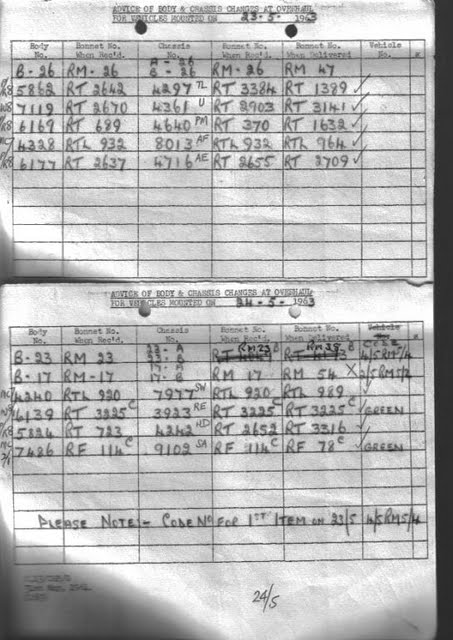 ADVICE OF BODY & CHASSIS CHANGES AT OVERHAUL
FOR VEHICLES MOUNTED ON 23-5- 1963
Body No. Bonnet No. When Rec'd. Chassis No. Bonnet No. When Rec'd. Bonnet No. When Delivered Vehicle No.
B-26 RM-26 A-26 B-26 RM-26 RM 47
5862 RT 2642 4297 TL RT 3384 RT 1389 ✓
7119 RT 2670 4361 U RT 2903 RT 3141 ✓
6169 RT 689 4640 PM RT 370 RT 1632 ✓
4328 RTL 932 8013 AF RTL 932 RTL 964 ✓
6177 RT 2637 4716 AE RT 2655 RT 2709 ✓
ADVICE OF BODY & CHASSIS CHANGES AT OVERHAUL
FOR VEHICLES MOUNTED ON 24-5- 1963
Body No. Bonnet No. When Rec'd. Chassis No. Bonnet No. When Rec'd. Bonnet No. When Delivered Vehicle
B-23 RM 23 RM23 B RM 39 B 4/5RM5/4
B-17 RM-17 17-A 17-B RM 17 RM 54 X
4240 RTL 920 7977 SW RTL 920 RTL 989 ✓
6139 RT 3225 C 3923 RE RT 3225 C RT 3225 C ✓ GREEN
5824 RT 723 4242 HD RT 2652 RT 3316 ✓
7486 RF 114 C 9102 SA RF 114 C RF 78 C ✓ GREEN
PLEASE NOTE:- CODE No FOR 1ST ITEM ON 23/5 4/5RM5/4
24/5